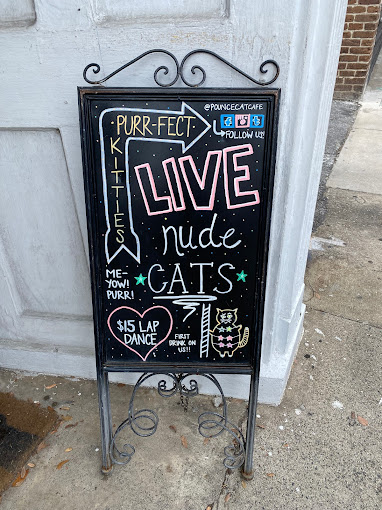 @POUNCECATCAFE
FOLLOW US!
PURR-FECT
KITTIES
LIVE
nude
CATS
ME-
YOW!
PURR!
$15 LAP
DANCE
FIRST
DRINK ON
US!!